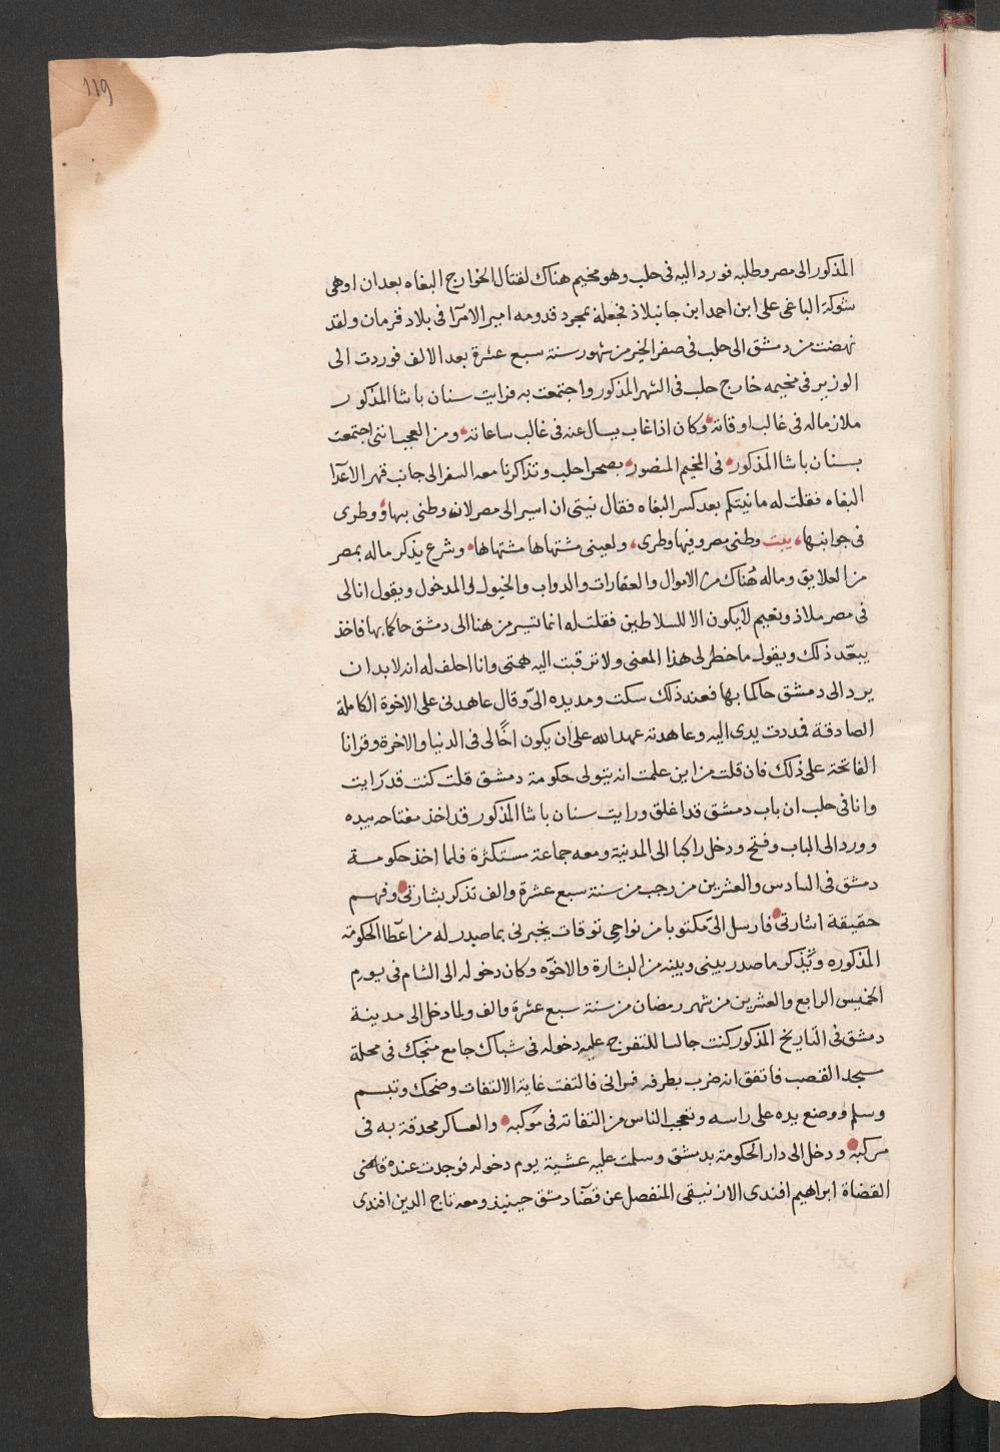 119
المذكور الى مصر وطلبه فورد اليه فى حلب وهو مخيم هناك لقتال الخوارج البغاه بعد ان اوهى
شوكة الباغى على ابن احمد ابن جانبلاذ فجعله بمجرد قدومه امير الامرآ فى بلاد قرمان ولقد
نهضت من دمشق الى حلب فى صفر الخير من شهور سنة سبع عشرة بعد الالف فوردت الى
الوزير فى مخيمه خارج حلب فى الشهر المذكور واجتمعت به فرايت سنان باشا المذكور
ملازما له فى غالب اوقاته وكان اذا غاب يسال عنه فى غالب ساعاته ومن العجب انى اجتمعت
بسنان باشا المذكور فى المخيم المنصور بصحرا حلب وتذاكرنا معه السفر الى جانب قهر الاعدا
البغاه فقلت له ما نيتكم بعد كسر البغاه فقال نيتى ان اسير الى مصر لانه وطنى بها ووطرى
فى جوانبها، بيت وطنى مصر وفيها وطرى، ولعينى مشتهاها مشتهاها وشرع يذكر ماله بمصر
من العلايق وماله هُناك من الاموال والعقارات والدواب والخيول والمدخول ويقول انا لى
فى مصر ملاذ ونعيم لا يكون الا للسلاطين فقلت له انما تسير من هنا الى دمشق حاكما بها فاخذ
يبعّد ذلك ويقول ما خطر لى هذا المعنى ولا ترقبت اليه همتى وانا احلف له انه لا بد ان
يرد الى دمشق حاكما بها فعند ذلك سكت ومد يده الىّ وقال عاهدنى على الاخوة الكاملة
الصادقة فمددت يدى اليه وعاهدته عهد الله على ان يكون اخًا لى فى الدنيا والاخرة وقرانا
الفاتحة على ذلك فان قلت من اين علمت انه يتولى حكومة دمشق قلت كنت قد رايت
وانا فى حلب ان باب دمشق قد اغلق ورايت سنان باشا المذكور قد اخذ مفتاحه بيده
وورد الى الباب وفتح ودخل راكبا الى المدنية ومعه جماعة مستكثرة فلما اخذ حكومة
دمشق فى السادس والعشرين من رجب من سنة سبع عشرة والف تذكر بشارتى وفهم
حقيقة اشارتى فارسل الىّ مكتوبا من نواحى توقات يخبرنى بما صدر له من اعطا الحكومة
المذكوره ويُذكر ما صدر بينى وبينه من البشارة والاخوّه وكان دخوله الى الشام فى يوم
الخميس الرابع والعشرين من شهر رمضان من سنة سبع عشرة والف ولما دخل الى مدينة
دمشق فى التاريخ المذكور كنت جالسا للتفرج عليه دخوله فى شباك جامع منجك فى محلة
سجد القصب فاتفق انه ضرب بطرفه فرانى فالتفت غاية الالتفات وضحك وتبسم
وسلم ووضع يده على راسه وتعجب الناس من التفاته فى موكبه والعساكر محدقة به فى
مركبه ودخل الى دار الحكومة بدمشق وسلمت عليه عشية يوم دخوله فوجدت عنده قاضى
القضاة ابراهيم افندى الازنيقى المنفصل عن قضا دمشق حينيذ ومعه تاج الدين افندى